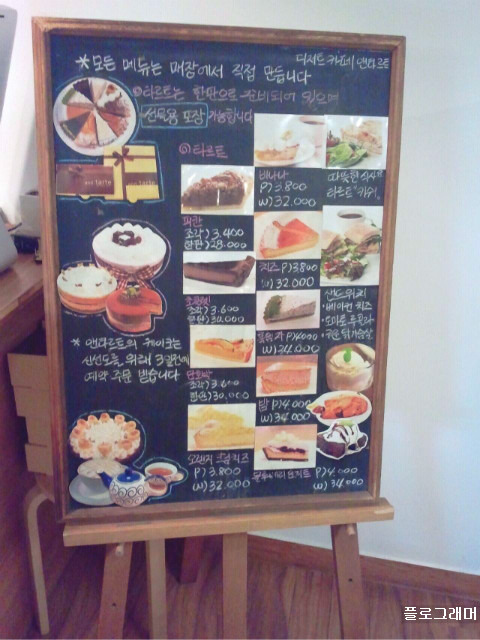 디저트 카페 앤타르트
*모든 메뉴는 매장에서 직접 만듭니다
◎타르트는 한판으로 준비되어 있으며
선물용 포장 가능합니다
and tarte
◎타르트
피칸
조각) 3.400
한판) 28.000
조각) 3.600
한판) 30.000
단호박
조각) 3.600
한판) 30.000
오렌지 크림치즈
P) 3.800
W) 32.000
바나나
P) 3.800
W) 32.000
치즈 P) 3800
W) 32.000
P) 4000
W) 34.000
밤 P) 4.000
W) 34.000
P) 4.000
W) 34.000
따뜻한 식사
타르트 "키쉬"
샌드위치
•베이컨 치즈
* 앤타르트의 케이크는
신선도를 위해 3일전에
예약 주문 받습니다
플로그래머